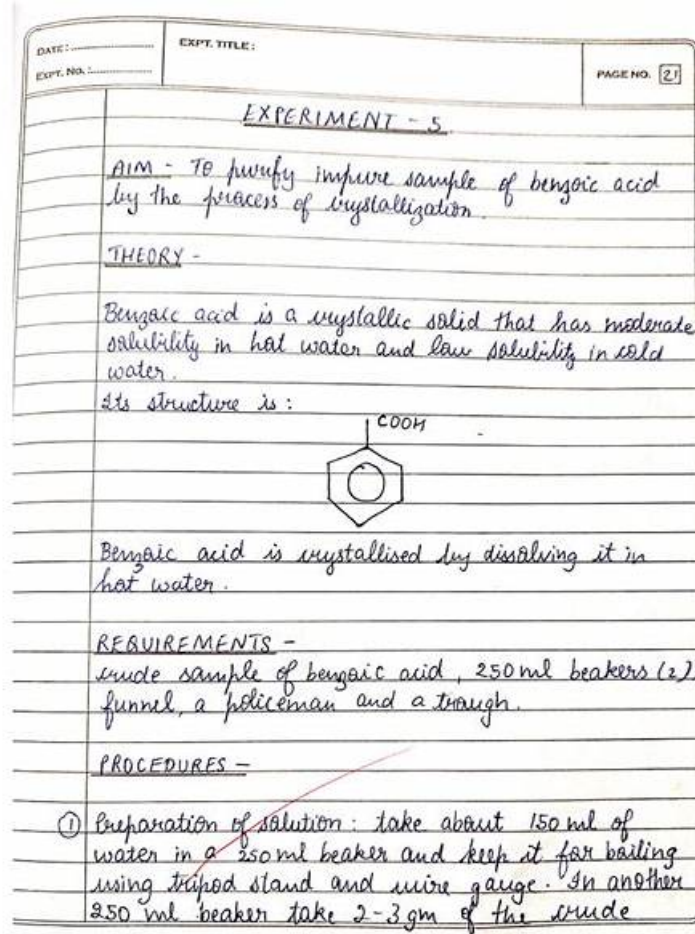 DATE:
EXPT. TITLE:
EXPT. NO.:
PAGE NO. 21
EXPERIMENT - 5
AIM - To purify impure sample of benzoic acid
by the process of crystallization.
THEORY -
Benzoic acid is a crystallic solid that has moderate
solubility in hot water and low solubility in cold
water.
Its structure is :
COOH
Benzoic acid is crystallised by dissolving it in
hot water.
REQUIREMENTS -
crude sample of benzoic acid, 250 ml beakers (2),
funnel, a policeman and a trough.
PROCEDURES -
① Preparation of solution: take about 150 ml of
water in a 250 ml beaker and keep it for boiling
using tripod stand and wire gauge. In another
250 ml beaker take 2-3 gm of the crude